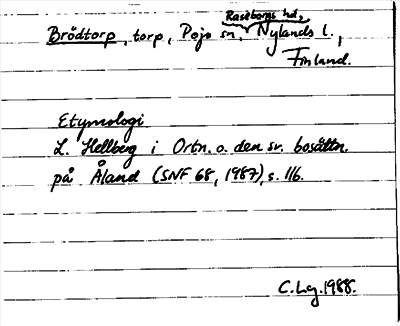 Raseborgs hd,
Brödtorp, torp, Pojo sn, Nylands l.,
Finland.
Etymologi
L. Hellberg i Ortn. o. den sv. bosättn.
på Åland (SNF 68, 1987), s. 116.
C. Lg. 1988.